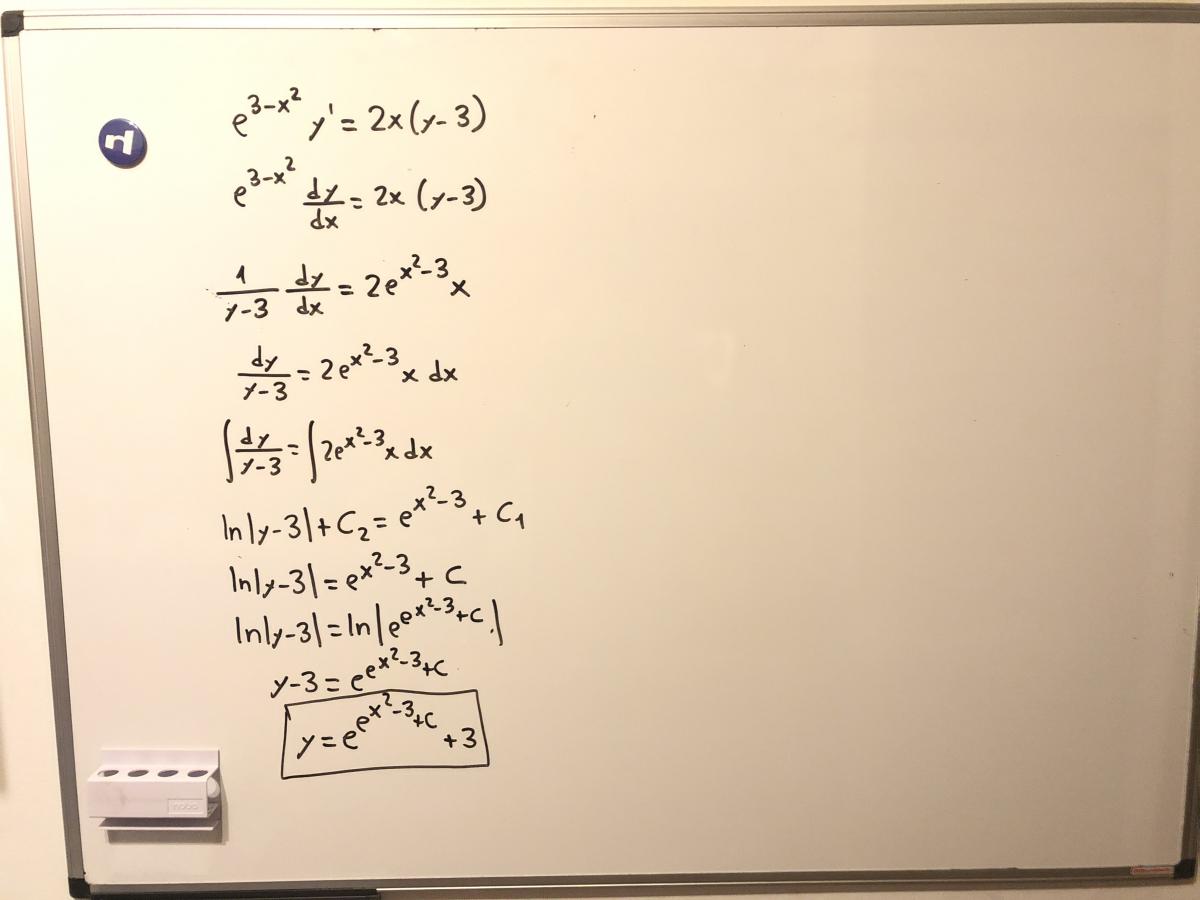 e^{3-x^2} y' = 2x(y-3)
e^{3-x^2} \frac{dy}{dx} = 2x (y-3)
\frac{1}{y-3} \frac{dy}{dx} = 2e^{x^2-3} x
\frac{dy}{y-3} = 2e^{x^2-3} x dx
\int \frac{dy}{y-3} = \int 2e^{x^2-3} x dx
ln|y-3| + C_2 = e^{x^2-3} + C_1
ln|y-3| = e^{x^2-3} + C
ln|y-3| = ln|e^{e^{x^2-3}+C}|
y-3 = e^{e^{x^2-3}+C}
y = e^{e^{x^2-3}+C} + 3
nobo